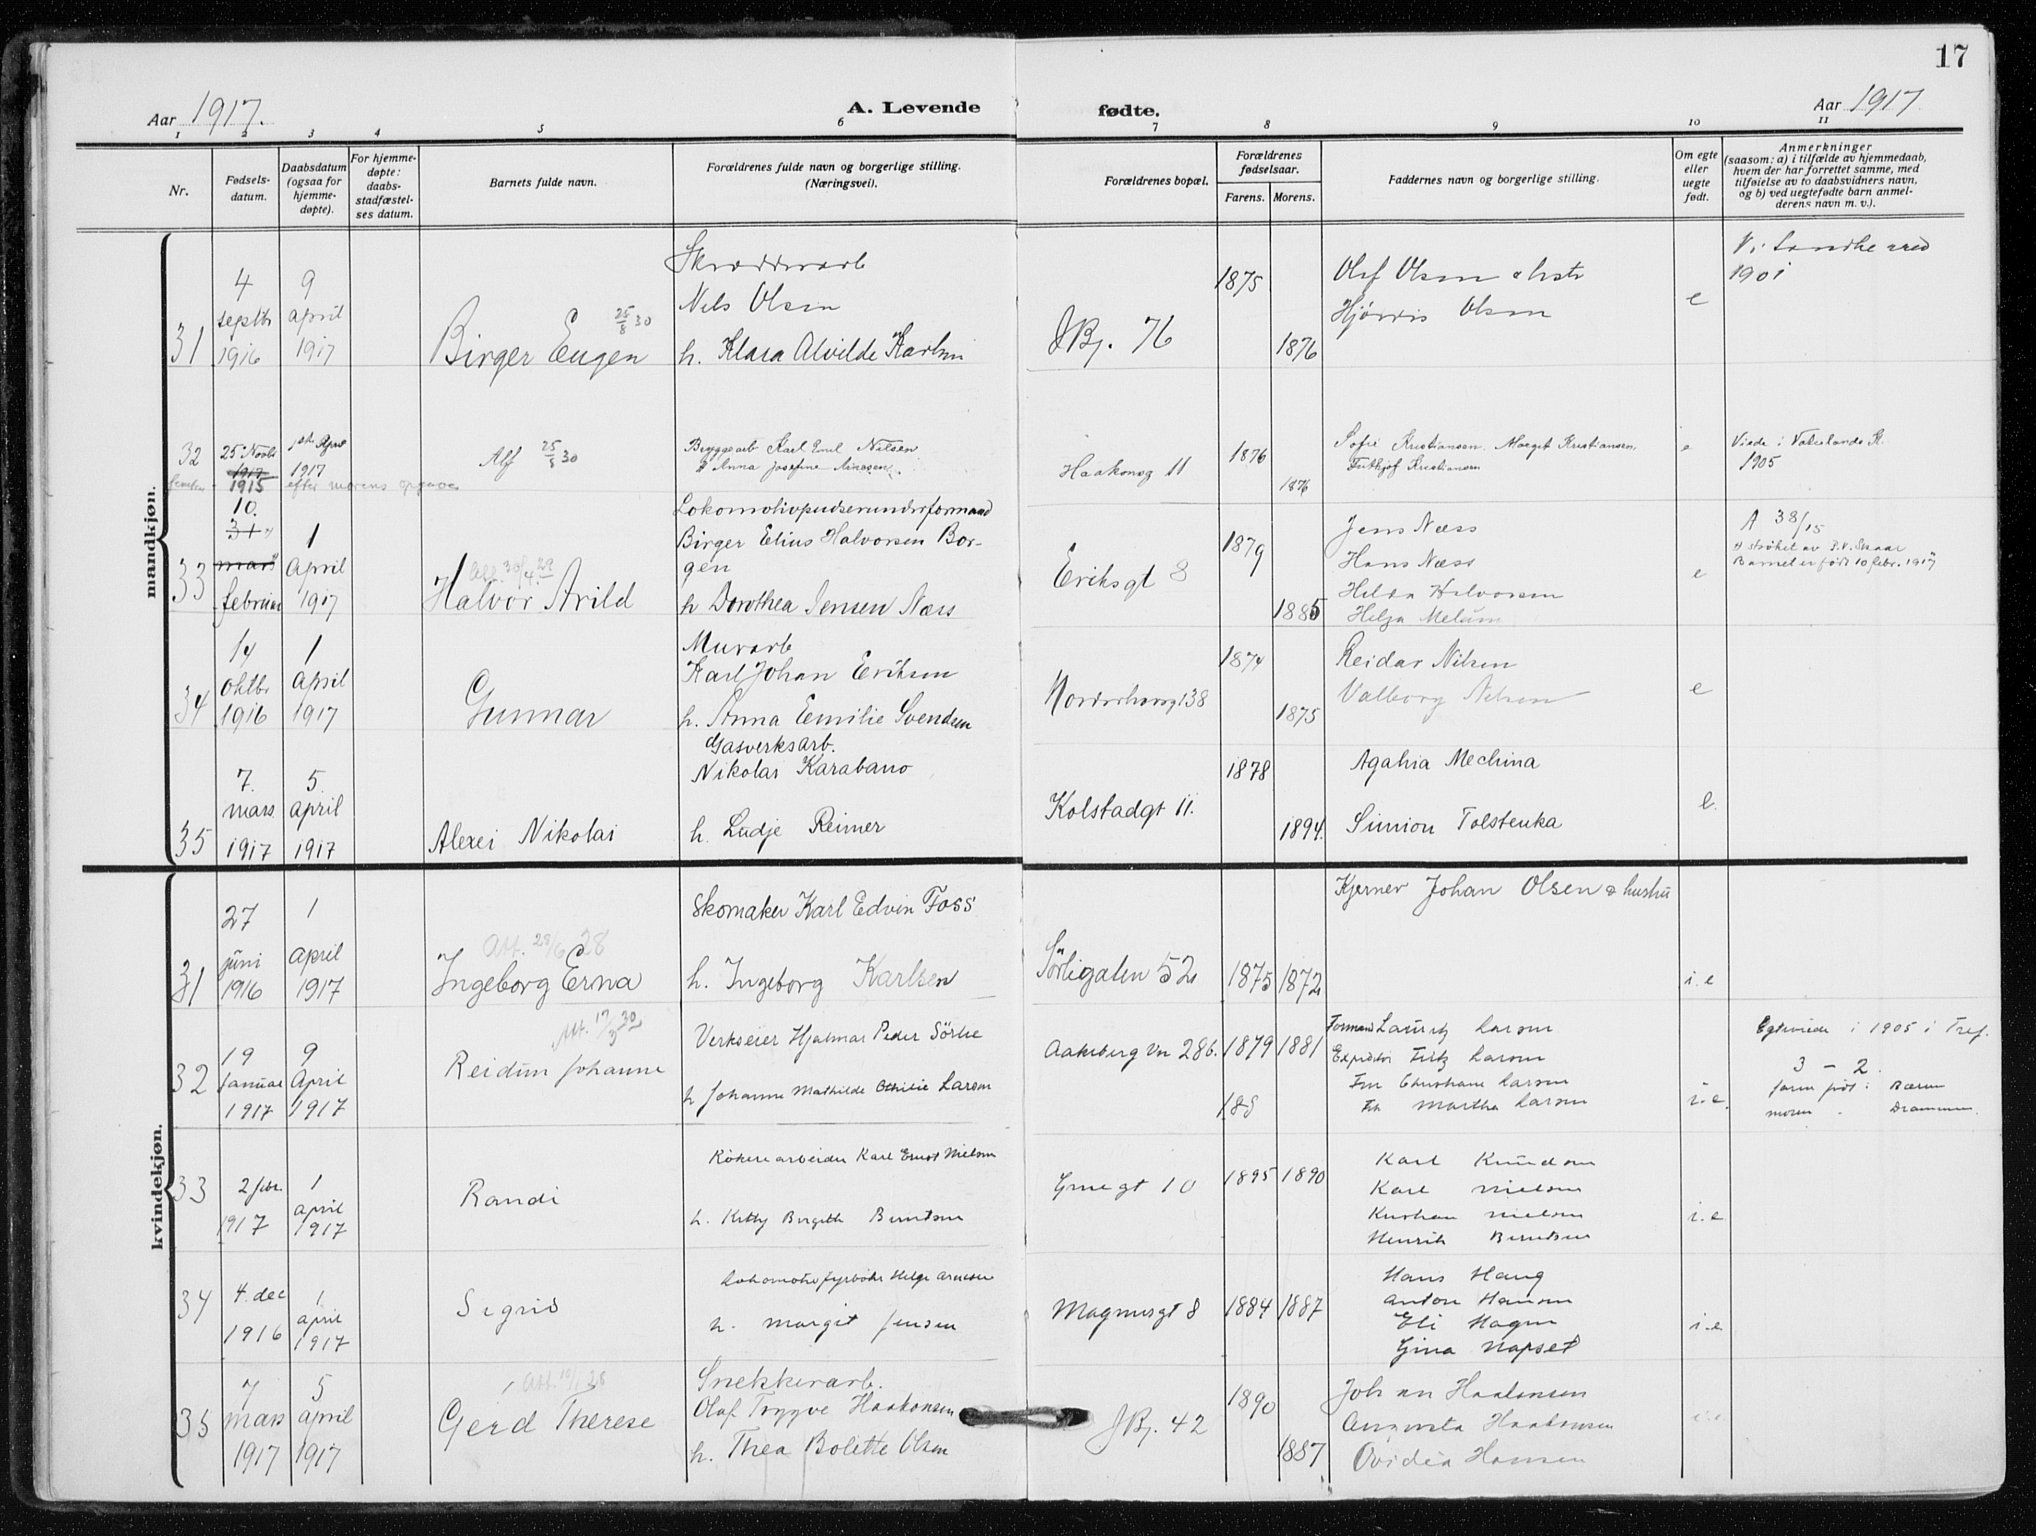 17
Aar 1917.
A. Levende
fødte.
Aar 1917
1 2 3 4 5 6 7 8 9 10 11
Nr.
Fødsels-
datum.
Daabsdatum
(ogsaa for
hjemme-
døpte).
For hjemme-
døpte:
daabs-
stadfæstel-
ses datum.
Barnets fulde navn.
Forældrenes fulde navn og borgerlige stilling.
(Næringsvei).
Forældrenes bopæl.
Forældrenes
fødselsaar.
Farens. Morens.
Faddernes navn og borgerlige stilling.
Om egte
eller
uegte
født.
Anmerkninger
(saasom: a) i tilfælde av hjemmedaab,
hvem der har forrettet samme, med
tilføielse av to daabsvidners navn,
og b) ved uegtefødte barn anmel-
derens navn m. v.).
mandkjøn.
31
4
septbr
1916
9
april
1917
Birger Eugen 25/8 30
Nils Olsen
h. Klara Alvilde Karlsen
JBj. 76
1875
1876
Olaf Olsen & hstr
Hjørdis Olsen
e
V. i
1901
32
25 Novbr
1917
1915
1ste April
1917
efter morens opgave
Alf 25/8 30
Bryggearb Karl Emil Nilsen
Anna Josefine
Haakonsg 11
1876
1876
Sofie Kristiansen. Margit Kristiansen,
Frithjof Kristiansen
e
Viede i
1905
33
10.
31
mars
februar
1
april
1917
Att. 30/4. 29
Halvor Arild
Lokomotivpudserunderformand
Birger Elius Halvorsen Bor-
gen
h Dorothea Jensen Næss
Eriksgt 8
1879
1885
Jens Næss
Hans Næss
Hilda Halvorsen
Helga Melum
e
A 38/15
strøket av P.V. Skaar
Barnet er født 10 febr. 1917
34
14
oktbr
1916
1
april
1917
Gunnar
Murarb
Karl Johan Eriksen
h. Anna Emilie Svendsen
Norderhovsg 138
1874
1875
Reidar Nilsen
Valborg Nilsen
e
35
7.
mars
1917
5.
april
1917
Alexei Nikolai
Gasverksarb.
Nikolai Karabano
h. Ludje Reimer
Kolstadgt 11.
1878
1894.
Agahia Mechina
Simion Tolstenka
e.
kvindekjøn.
31
27
juni
1916
1
april
1917
Att. 28/6 28
Ingeborg Erna
Skomaker Karl Edvin Foss
h. Ingeborg Karlsen
Sörligaten 52
1875 1872
Kjerner Johan Olsen & hustru
i. e
32
19
Januar
1917
9
April
1917
Att. 17/3 30
Reidun Johanne
Verkseier Hjalmar Peder Sörlie
h Johanne Mathilde Othilie Larsen
Aakeberg vn 28b.
1879 1881
188
Formand Lauritz Larsen
Expeditör Fritz Larsen
Fru Christiane Larsen
Frk Martha Larsen
i. e.
Egteviede i 1905 i Tref.
3 - 2.
faren født i Bærum
moren - Drammen.
33
2 febr.
1917
1
april
1917
Randi
Karl Ernst Nielsen
h. Kitty Birgitte Berntsen
Gruegt 10
1895 1890
Karl Knudsen
Karl Nielsen
Kristian Nielsen
Henrik Berntsen
i. e
34
4. dec
1916
1
april
1917
Sigrid
Lokomotivfyrböter Helge Arnesen
h. Margit Jensen
Magnusgt 8
1884 1887
Hans Haug
Anton Hansen
Eli Hagen
Gina Hapset
i. e
35
7
mars
1917
5
april
1917
Att. 10/1 28
Gerd Therese
Snekkerarb.
Olaf Trygve Haakonsen
h. Thea Bolette Olsen
JBj. 42
1890
1887
Johan Haakonsen
Augusta Haakonsen
Ovidia Hansen
i. e